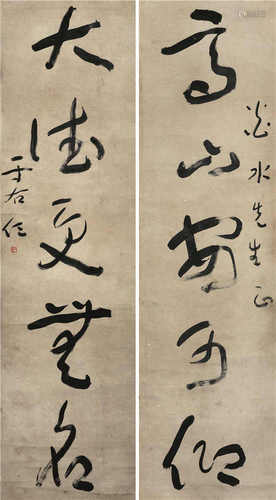 水先生正
高山安可仰
大德更無名
于右任